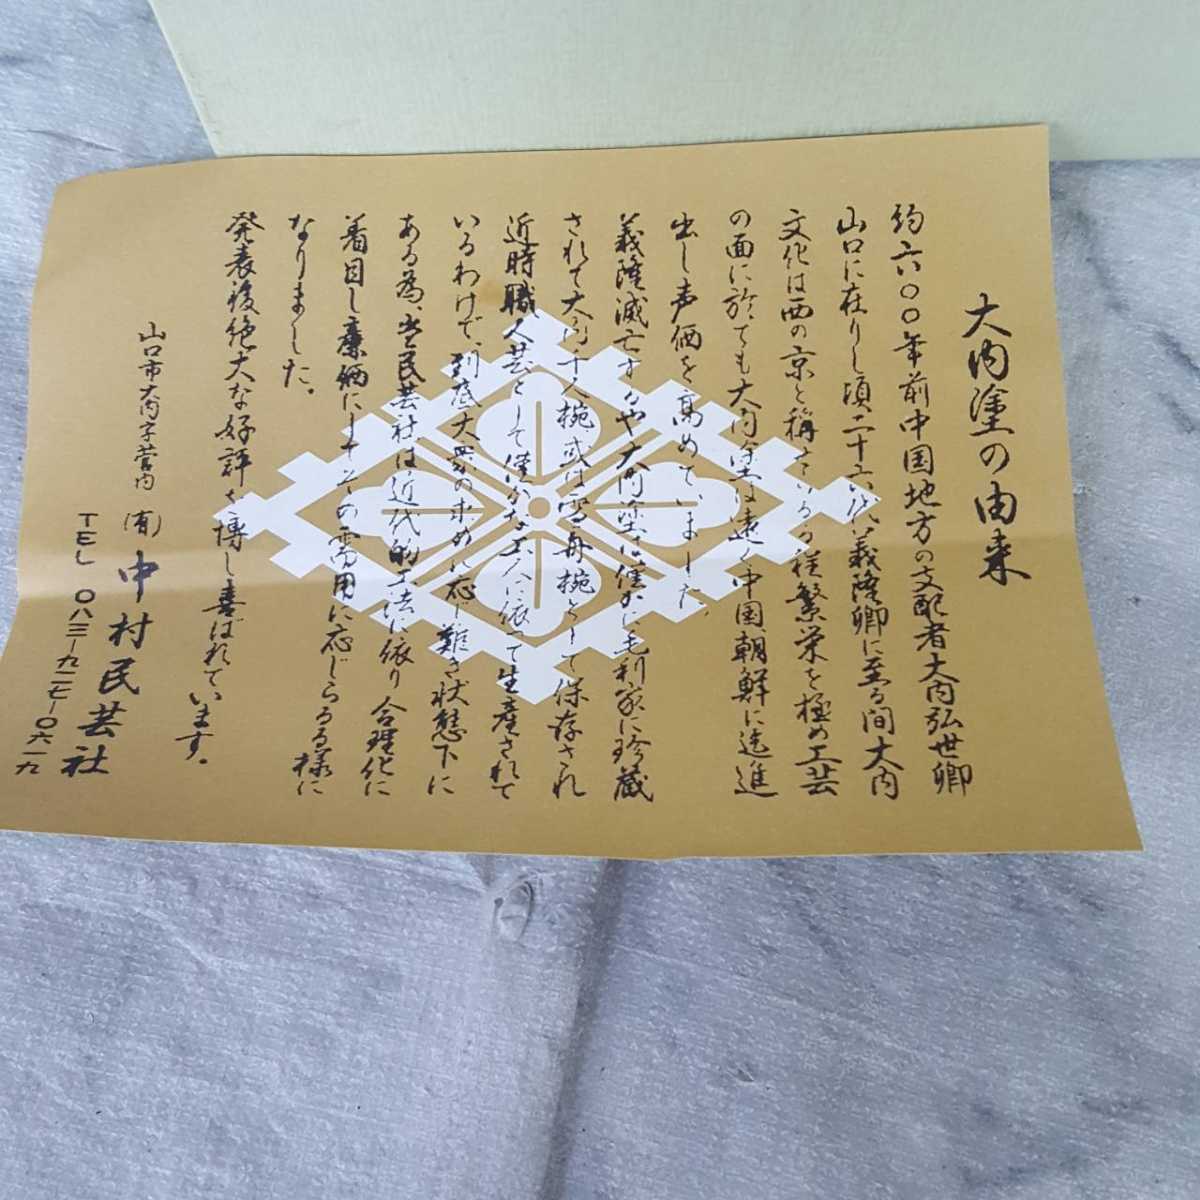 大内塗の由来
約六〇〇年前中国地方の支配者大内弘世卿
山口に在りし頃二十六代義隆卿に至る間大内
文化は西の京と称せらるる程繁栄を極め工芸
の面に於ても大内塗は遠く中国、朝鮮に迄進
出し声価を高めていました。
義隆滅亡するや大内塗は僅かに毛利家に珍蔵
されて大内千人椀或は雪舟椀として保存され
近時職人芸として僅かな工人に依って生産されて
いるわけで、到底大衆の求めに応じ難き状態下に
ある為、当民芸社は近代的工法に依り合理化に
着目し廉価にしてその需用に応じらるる様に
なりました。
発表後絶大な好評を博し喜ばれています。
山口市大内字菅内
(有)中村民芸社
TEL 〇八三ー九二七ー〇六一九